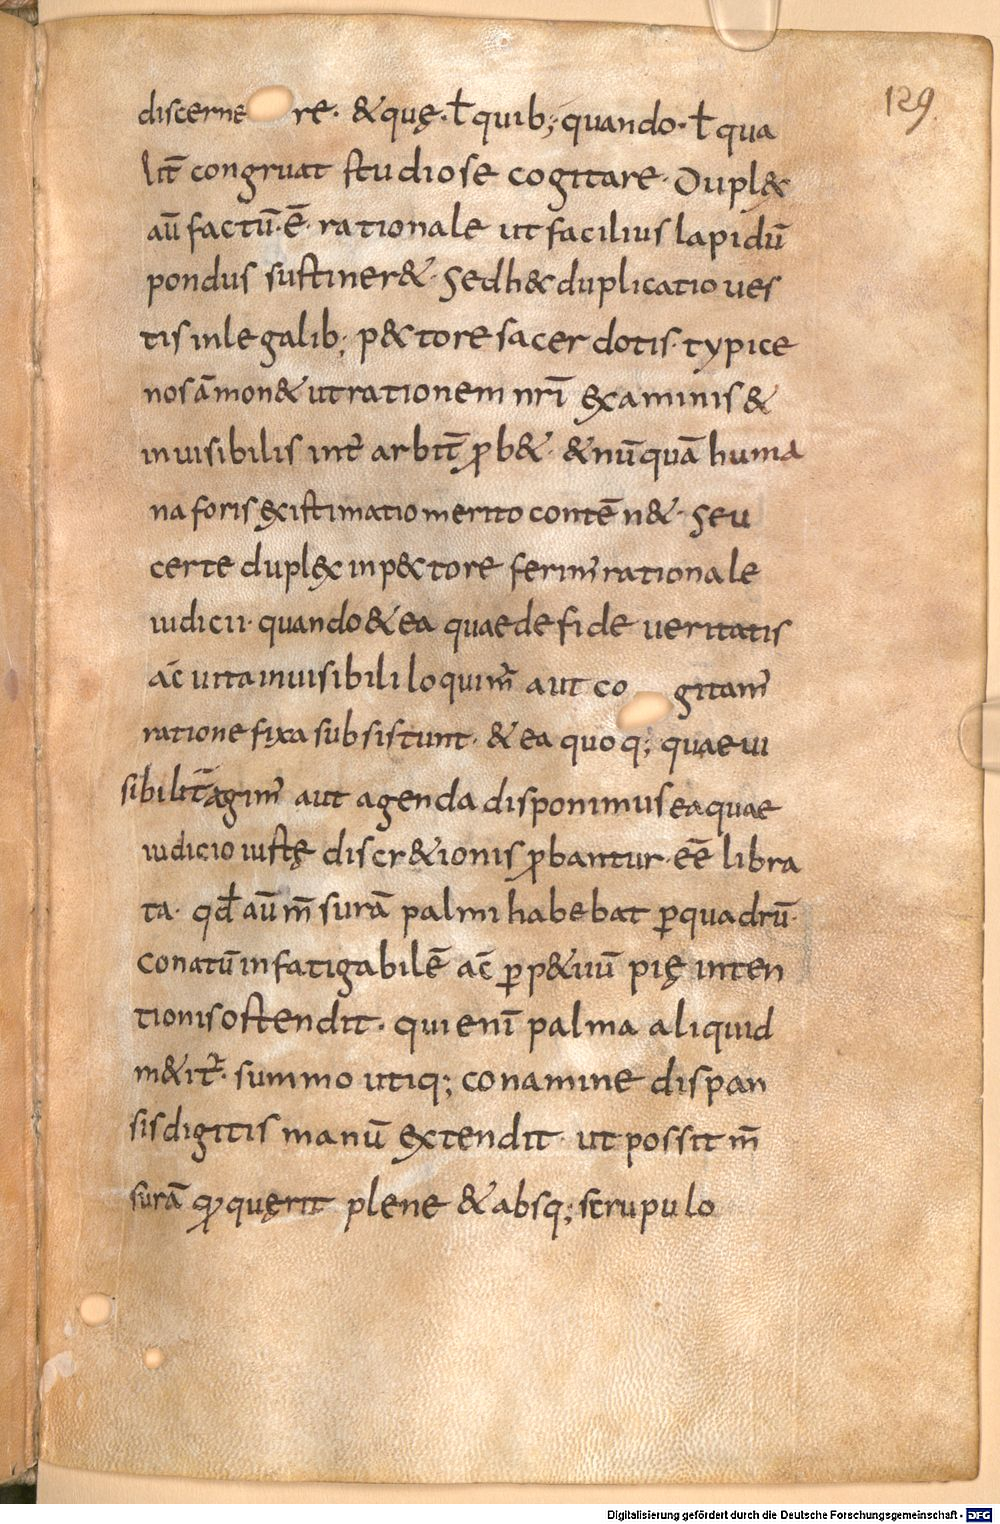 129
discerne re· &quę·ł quib;· quando·ł qua
lit̄ congruat studiose cogitare· Dupl&x
aū factū·ē· rationale ut facilius lapidū
pondus sustiner&· Sedh&c duplicatio ues
tis inlegalib; p&ctore sacerdotis· typice
nosāmon& utrationem nr̄i examinis &
inuisibilis int̄ arbit̄ ꝓb&· &nūquā huma
na foris existimatio merito contēn&· Seu
certe duplex inp&ctore ferim̄ rationale
iudicii· quando & ea quae de fide ueritatis
ac̄ uita inuisibili loquim̄ aut co gitam̄
ratione fixa subsistunt· & ea quoq; quae ui
sibilit̄ agim̄ aut agenda disponimus ea quae
iudicio iustę discr&ionis ꝓbantur· eē libra
ta· qd̄ aū m̄surā palmi habebat ꝑquadrū·
conatū infatigabilē ac̄ ꝑp&uū pię inten
tionis ostendit· qui enī palma aliquid
m&it̄· summo utiq; conamine dispan
sis digitis manū extendit· ut possit m̄
surā ꝙ quęrit plene & absq; scrupulo
Digitalisierung gefördert durch die Deutsche Forschungsgemeinschaft - DFG